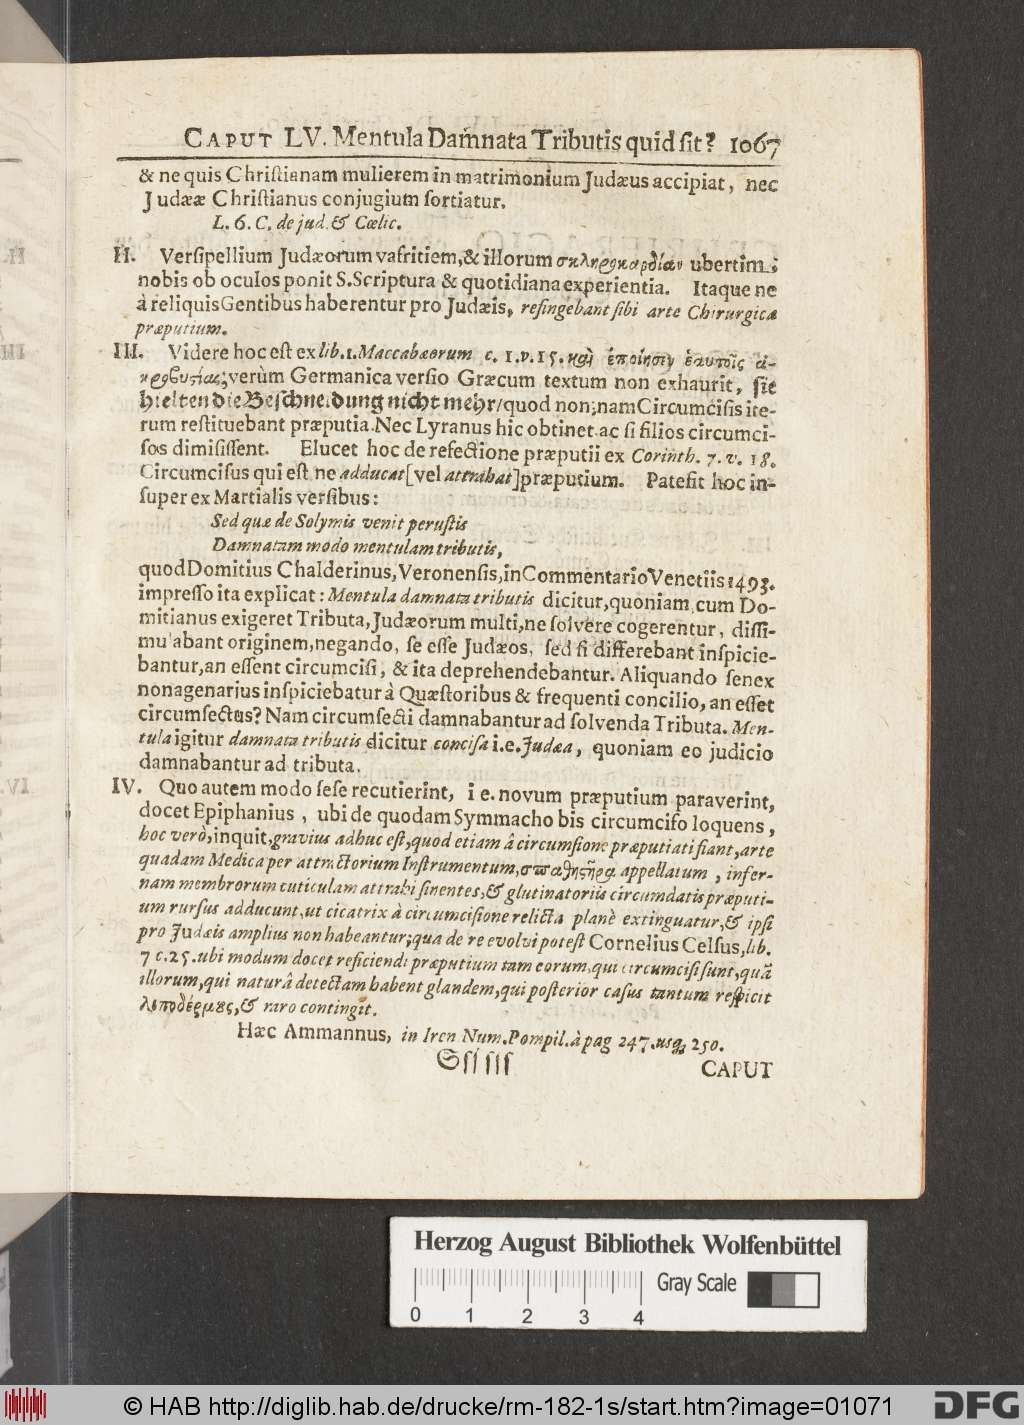 CAPUT LV. Mentula Dam̃nata Tributis quid sit? 1067
& ne quis Christianam mulierem in matrimonium Judæus accipiat, nec
Judææ Christianus conjugium sortiatur.
L. 6. C. de jud. & Cœlic.
II. Versipellium Judæorum vafritiem, & illorum σκληροκαρδίαν ubertim
nobis ob oculos ponit S. Scriptura & quotidiana experientia. Itaque ne
à reliquis Gentibus haberentur pro Judæis, refingebant sibi arte Chirurgica
præputium.
III. Videre hoc est ex lib. 1. Maccabæorum c. 1. v. 15. καὶ ἐποίησαν ἑαυτοῖς ἀ-
κροβυστίας; verùm Germanica versio Græcum textum non exhaurit, sie
hielten die Beschneidung nicht mehr/ quod non; nam Circumcisis ite-
rum restituebant præputia. Nec Lyranus hic obtinet ac si filios circumci-
sos dimisissent. Elucet hoc de refectione præputii ex Corinth. 7. v. 18.
Circumcisus qui est ne adducat [vel attrahat] præputium. Patesit hoc in-
super ex Martialis versibus:
Sed quæ de Solymis venit perustis
Damnatam modo mentulam tributis,
quod Domitius Chalderinus, Veronensis, in Commentario Venetiis 1493.
impresso ita explicat: Mentula damnata tributis dicitur, quoniam cum Do-
mitianus exigeret Tributa, Judæorum multi, ne solvere cogerentur, dissi-
mulabant originem, negando, se esse Judæos, sed si differebant inspicie-
bantur, an essent circumcisi, & ita deprehendebantur. Aliquando senex
nonagenarius inspiciebatur à Quæstoribus & frequenti concilio, an esset
circumsectus? Nam circumsecti damnabantur ad solvenda Tributa. Men-
tula igitur damnata tributis dicitur concisa i.e. Judæa, quoniam eo judicio
damnabantur ad tributa.
IV. Quo autem modo sese recutierint, i e. novum præputium paraverint,
docet Epiphanius, ubi de quodam Symmacho bis circumciso loquens,
hoc verò, inquit, gravius adhuc est, quod etiam â circumsione præputiati fiant, arte
quadam Medica per attractorium Instrumentum, σπαθηστῆρα appellatum, infer-
nam membrorum cuticulam attrahi sinentes, & glutinatoriis circumdatis præputi-
um rursus adducunt, ut cicatrix à circumcisione relicta planè extinguatur, & ipsi
pro Judæis amplius non habeantur; qua de re evolvi potest Cornelius Celsus, lib.
7 c. 25. ubi modum docet reficiendi præputium tam eorum, qui circumcisi sunt, quã
illorum, qui naturâ detectam habent glandem, qui posterior casus tantum respicit
λιποδέρμους, & raro contingit.
Hæc Ammannus, in Iren Num. Pompil. à pag 247. usq; 250.
Sssssss
CAPUT
Herzog August Bibliothek Wolfenbüttel
Gray Scale
0 1 2 3 4
© HAB http://diglib.hab.de/drucke/rm-182-1s/start.htm?image=01071
DFG